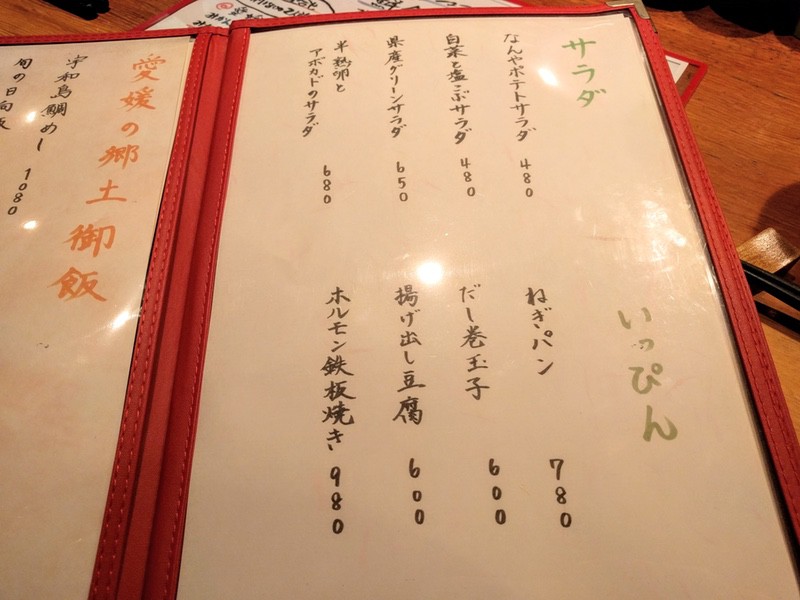 サラダ
なんやポテトサラダ 480
白菜と塩こぶサラダ 480
県産グリーンサラダ 650
半熟卵と
アボカドのサラダ 680
いっぴん
ねぎパン 780
だし巻玉子 600
揚げ出し豆腐 600
ホルモン鉄板焼き 980
愛媛の郷土御飯
宇和島鯛めし 1080
旬の日向飯